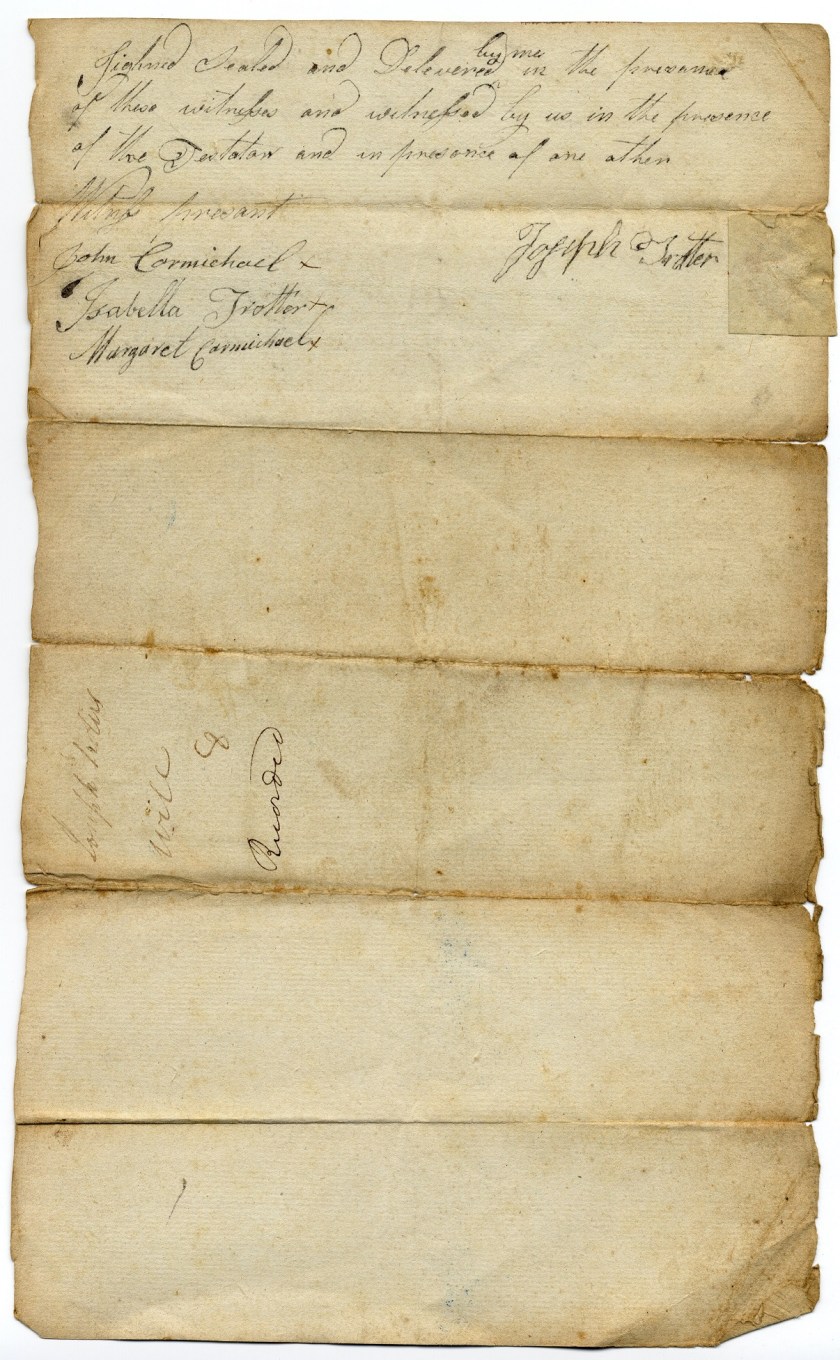 Sighned Sealed and Delevered by me in the presence
of these witnesses and witnessed by us in the presence
of the Testator and in presence of one other
Witness presant
John Carmichael x
Joseph Trotter
Isabella Trotter x
Margaret Carmichael x
Joseph
Will
&
Recorded